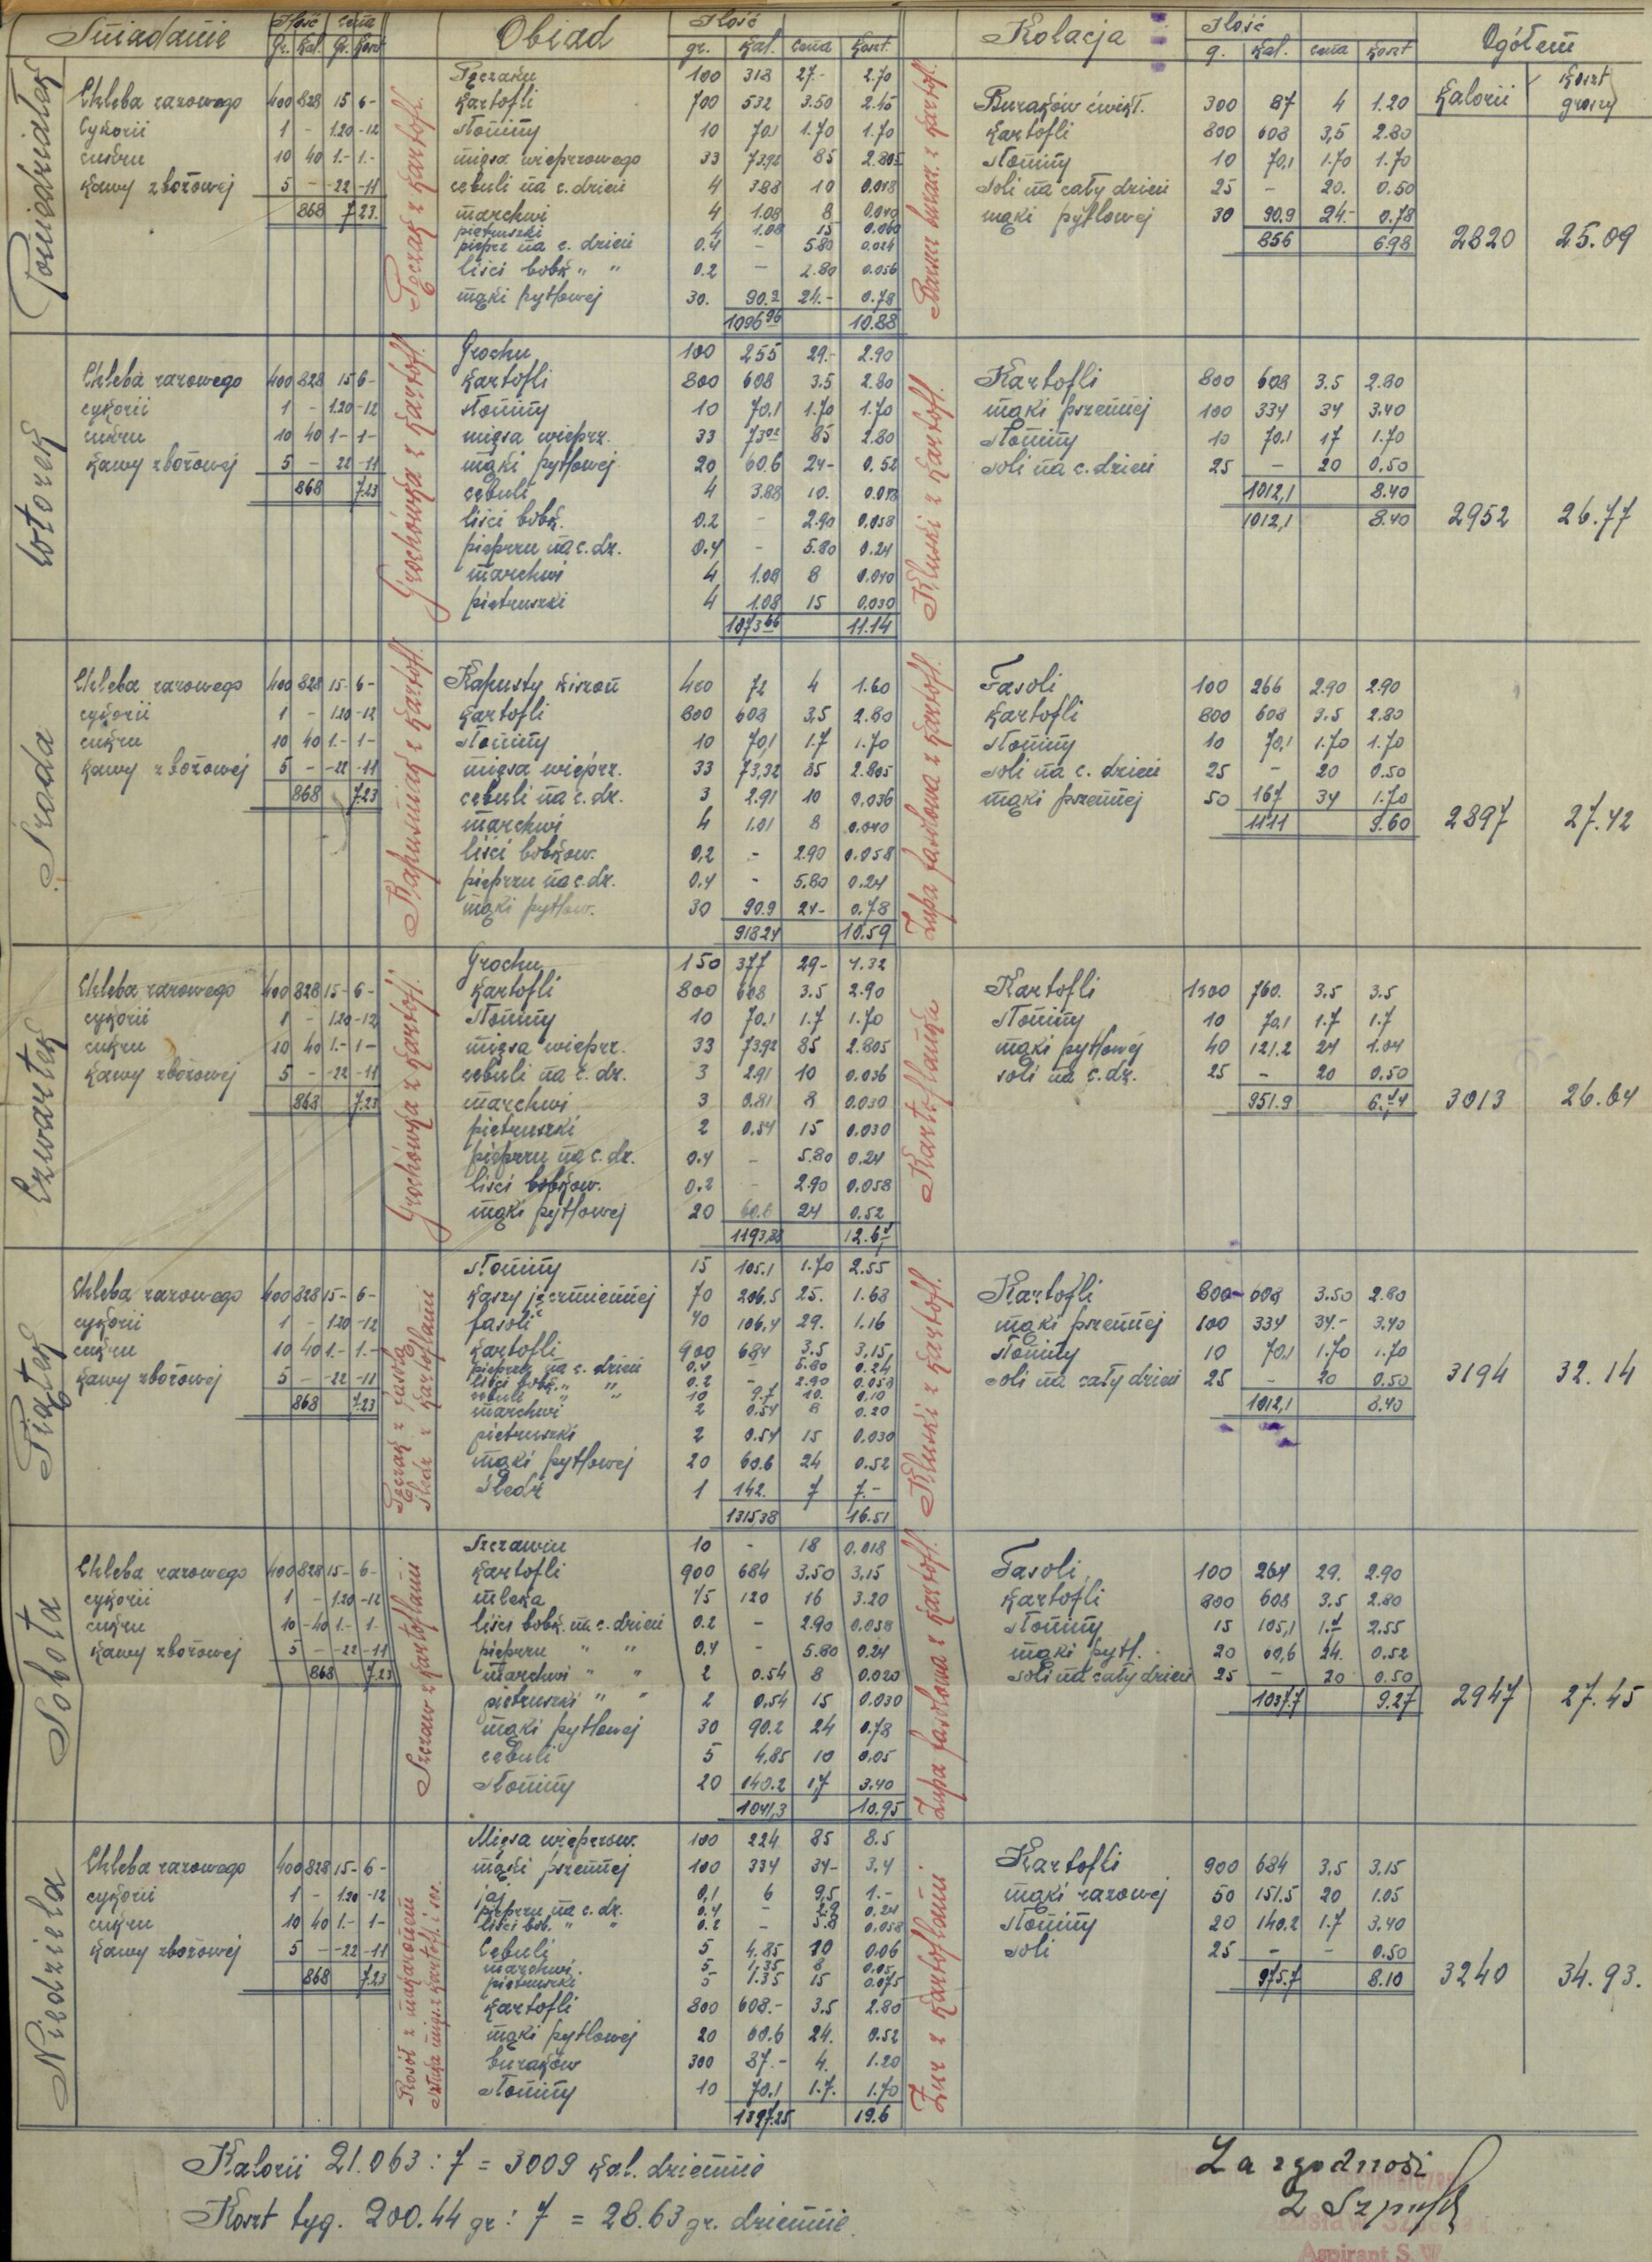 Śniadanie Ilość cena Obiad Ilość Kolacja Ilość Ogółem
Gr. Kal. Gr. Koszt gr. Kal. cena Koszt g. Kal. cena Koszt Kalorii Koszt groszy
Poniedziałek
Chleba razowego 400 828 15 6-
Cykorii 1 - 1.20 -12
cukru 10 40 1.- 1.-
Kawy zbożowej 5 - -22 -11
868 7.23
Pęczak z kartofl.
Pęczaku 100 318 27.- 2.70
Kartofli 700 532 3.50 2.45
słoniny 10 70,1 1.70 1.70
mięsa wieprzowego 33 73,92 85 2.805
cebuli na c. dzień 4 3.88 10 0.048
marchwi 4 1.08 8 0.040
pietruszki 4 1.08 15 0.060
pieprz na c. dzień 0.4 - 5.80 0.024
liści bobk. " " 0.2 - 2.80 0.056
mąki pytlowej 30. 90.2 24.- 0.78
1096 96 10.88
Buraków ćwikł. 300 87 4 1.20
Kartofli 800 608 3,5 2.80
słoniny 10 70,1 1.70 1.70
soli na cały dzień 25 - 20. 0.50
mąki pytlowej 30 90.9 24.- 0.78
856 6.98
2820 25.09
Wtorek
Chleba razowego 400 828 15 6-
cykorii 1 - 1.20 -12
cukru 10 40 1- 1-
Kawy zbożowej 5 - 22 -11
868 7.23
Grochówka z kartofl.
Grochu 100 255 29.- 2.90
Kartofli 800 608 3.5 2.80
słoniny 10 70,1 1.70 1.70
mięsa wieprz. 33 73 92 85 2.80
mąki pytlowej 20 60.6 24- 0.52
cebuli 4 3.88 10. 0.048
liści bobk. 0.2 - 2.90 0.058
pieprzu na c. dz. 0.4 - 5.80 0.24
marchwi 4 1.08 8 0.040
pietruszki 4 1.08 15 0.030
1073 66 11.14
Kluski z kartofl.
Kartofli 800 608 3.5 2.80
mąki pszennej 100 334 34 3.40
słoniny 10 70.1 17 1.70
soli na c. dzień 25 - 20 0.50
1012,1 8.40
1012,1 8.40
2952 26.77
Środa
Chleba razowego 400 828 15- 6-
cykorii 1 - 1.20 -12
cukru 10 40 1.- 1-
Kawy zbożowej 5 - -22 -11
868 7.23
Kapuśniak z kartofl.
Kapusty kiszon 400 72 4 1.60
Kartofli 800 608 3,5 2.80
słoniny 10 70,1 1.7 1.70
mięsa wieprz. 33 73,92 85 2.805
cebuli na c. dz. 3 2.91 10 0,036
marchwi 4 1.01 8 0.040
liści bobkow. 0,2 - 2.90 0.058
pieprzu na c. dz. 0.4 - 5.80 0.24
mąki pytlow. 30 90.9 24- 0.78
918 24 10.59
Zupa fasolowa z kartofl.
Fasoli 100 266 2.90 2.90
Kartofli 800 608 3.5 2.80
słoniny 10 70,1 1.70 1.70
soli na c. dzień 25 - 20 0.50
mąki pszennej 50 167 34 1.70
1111 9.60
2897 27.42
Czwartek
Chleba razowego 400 828 15- 6-
cykorii 1 - 1.20 -12
cukru 10 40 1.- 1-
Kawy zbożowej 5 - -22 -11
868 7.23
Grochówka z kartofl.
Grochu 150 377 29- 4.32
Kartofli 800 608 3.5 2.90
słoniny 10 70,1 1.7 1.70
mięsa wieprz. 33 73.92 85 2.805
cebuli na c. dz. 3 2.91 10 0.036
marchwi 3 0.81 8 0.030
pietruszki 2 0.54 15 0.030
pieprzu na c. dz. 0.4 - 5.80 0.24
liści bobkow. 0.2 - 2.90 0.058
mąki pytlowej 20 60.6 24 0.52
1193,88 12.67
Kartoflanka
Kartofli 1000 760. 3.5 3.5
słoniny 10 70,1 1.7 1.7
mąki pytlowej 40 121.2 24 1.04
soli na c. dz. 25 - 20 0.50
951.9 6.74
3013 26.64
Piątek
Chleba razowego 400 828 15- 6-
cykorii 1 - 1.20 -12
cukru 10 40 1.- 1.-
Kawy zbożowej 5 - -22 -11
868 7.23
Pęczak z fasolą
śledź z kartoflami
słoniny 15 105.1 1.70 2.55
Kaszy jęczmiennej 70 206.5 25. 1.68
fasoli 40 106,4 29. 1.16
Kartofli 900 684 3.5 3.15
pieprzu na c. dzień 0.4 - 5.80 0.24
liści bobk. " " 0.2 - 2.90 0.058
cebuli " " 10 9.7 10. 0.10
marchwi 2 0.54 8 0.20
pietruszki 2 0.54 15 0.030
mąki pytlowej 20 60.6 24 0.52
śledź 1 142. 7 7.-
1315 38 16.51
Kluski z kartofl.
Kartofli 800 608 3.50 2.80
mąki pszennej 100 334 34.- 3.40
słoniny 10 70,1 1.70 1.70
soli na cały dzień 25 - 20 0.50
1012,1 8.40
3194 32.14
Sobota
Chleba razowego 400 828 15- 6-
cykorii 1 - 1.20 -12
cukru 10 -40 1.- 1-
Kawy zbożowej 5 - -22 -11
868 7.23
Szczaw z kartoflami
Szczawiu 10 - 18 0.018
Kartofli 900 684 3.50 3,15
mleka 15 120 16 3.20
liści bobk. na c. dzień 0.2 - 2.90 0.058
pieprzu " " 0.4 - 5.80 0.24
marchwi " " 2 0.54 8 0.020
pietruszki " " 2 0.54 15 0.030
mąki pytlowej 30 90.2 24 0.78
cebuli 5 4.85 10 0.05
słoniny 20 140.2 1,7 3.40
1041,3 10.95
Zupa fasolowa z kartofl.
Fasoli 100 264 29. 2.90
Kartofli 800 608 3.5 2.80
słoniny 15 105,1 1.7 2.55
mąki pytl. 20 60,6 24. 0.52
soli na cały dzień 25 - 20 0.50
1037.7 9.27
2947 27.45
Niedziela
Chleba razowego 400 828 15- 6-
cykorii 1 - 1.20 -12
cukru 10 40 1.- 1-
Kawy zbożowej 5 - -22 -11
868 7.23
Rosół z makaronem
Mięsa wieprzow. 100 224 85 8.5
mąki pszennej 100 334 34- 3.4
jaj 0,1 6 9,5 1.-
pieprzu na c. dz. 0.4 - 2.9 0.24
liści bob. " " 0.2 - 5.8 0.058
Cebuli 5 4.85 10 0.06
marchwi 5 1,35 8 0.05
pietruszki 5 1.35 15 0.075
Kartofli 800 608.- 3.5 2.80
mąki pytlowej 20 60.6 24. 0.52
buraków 300 87.- 4. 1.20
słoniny 10 70.1 1.7. 1.70
1397.25 19.6
Żur z kartoflami
Kartofli 900 684 3.5 3.15
mąki razowej 50 151.5 20 1.05
słoniny 20 140.2 1.7 3.40
soli 25 - - 0.50
975.7 8.10
3240 34.93.
Kalorii 21.063 : 7 = 3009 kal. dziennie
Koszt tyg. 200.44 gr : 7 = 28.63 gr. dziennie
Za zgodność
Aspirant S. W.